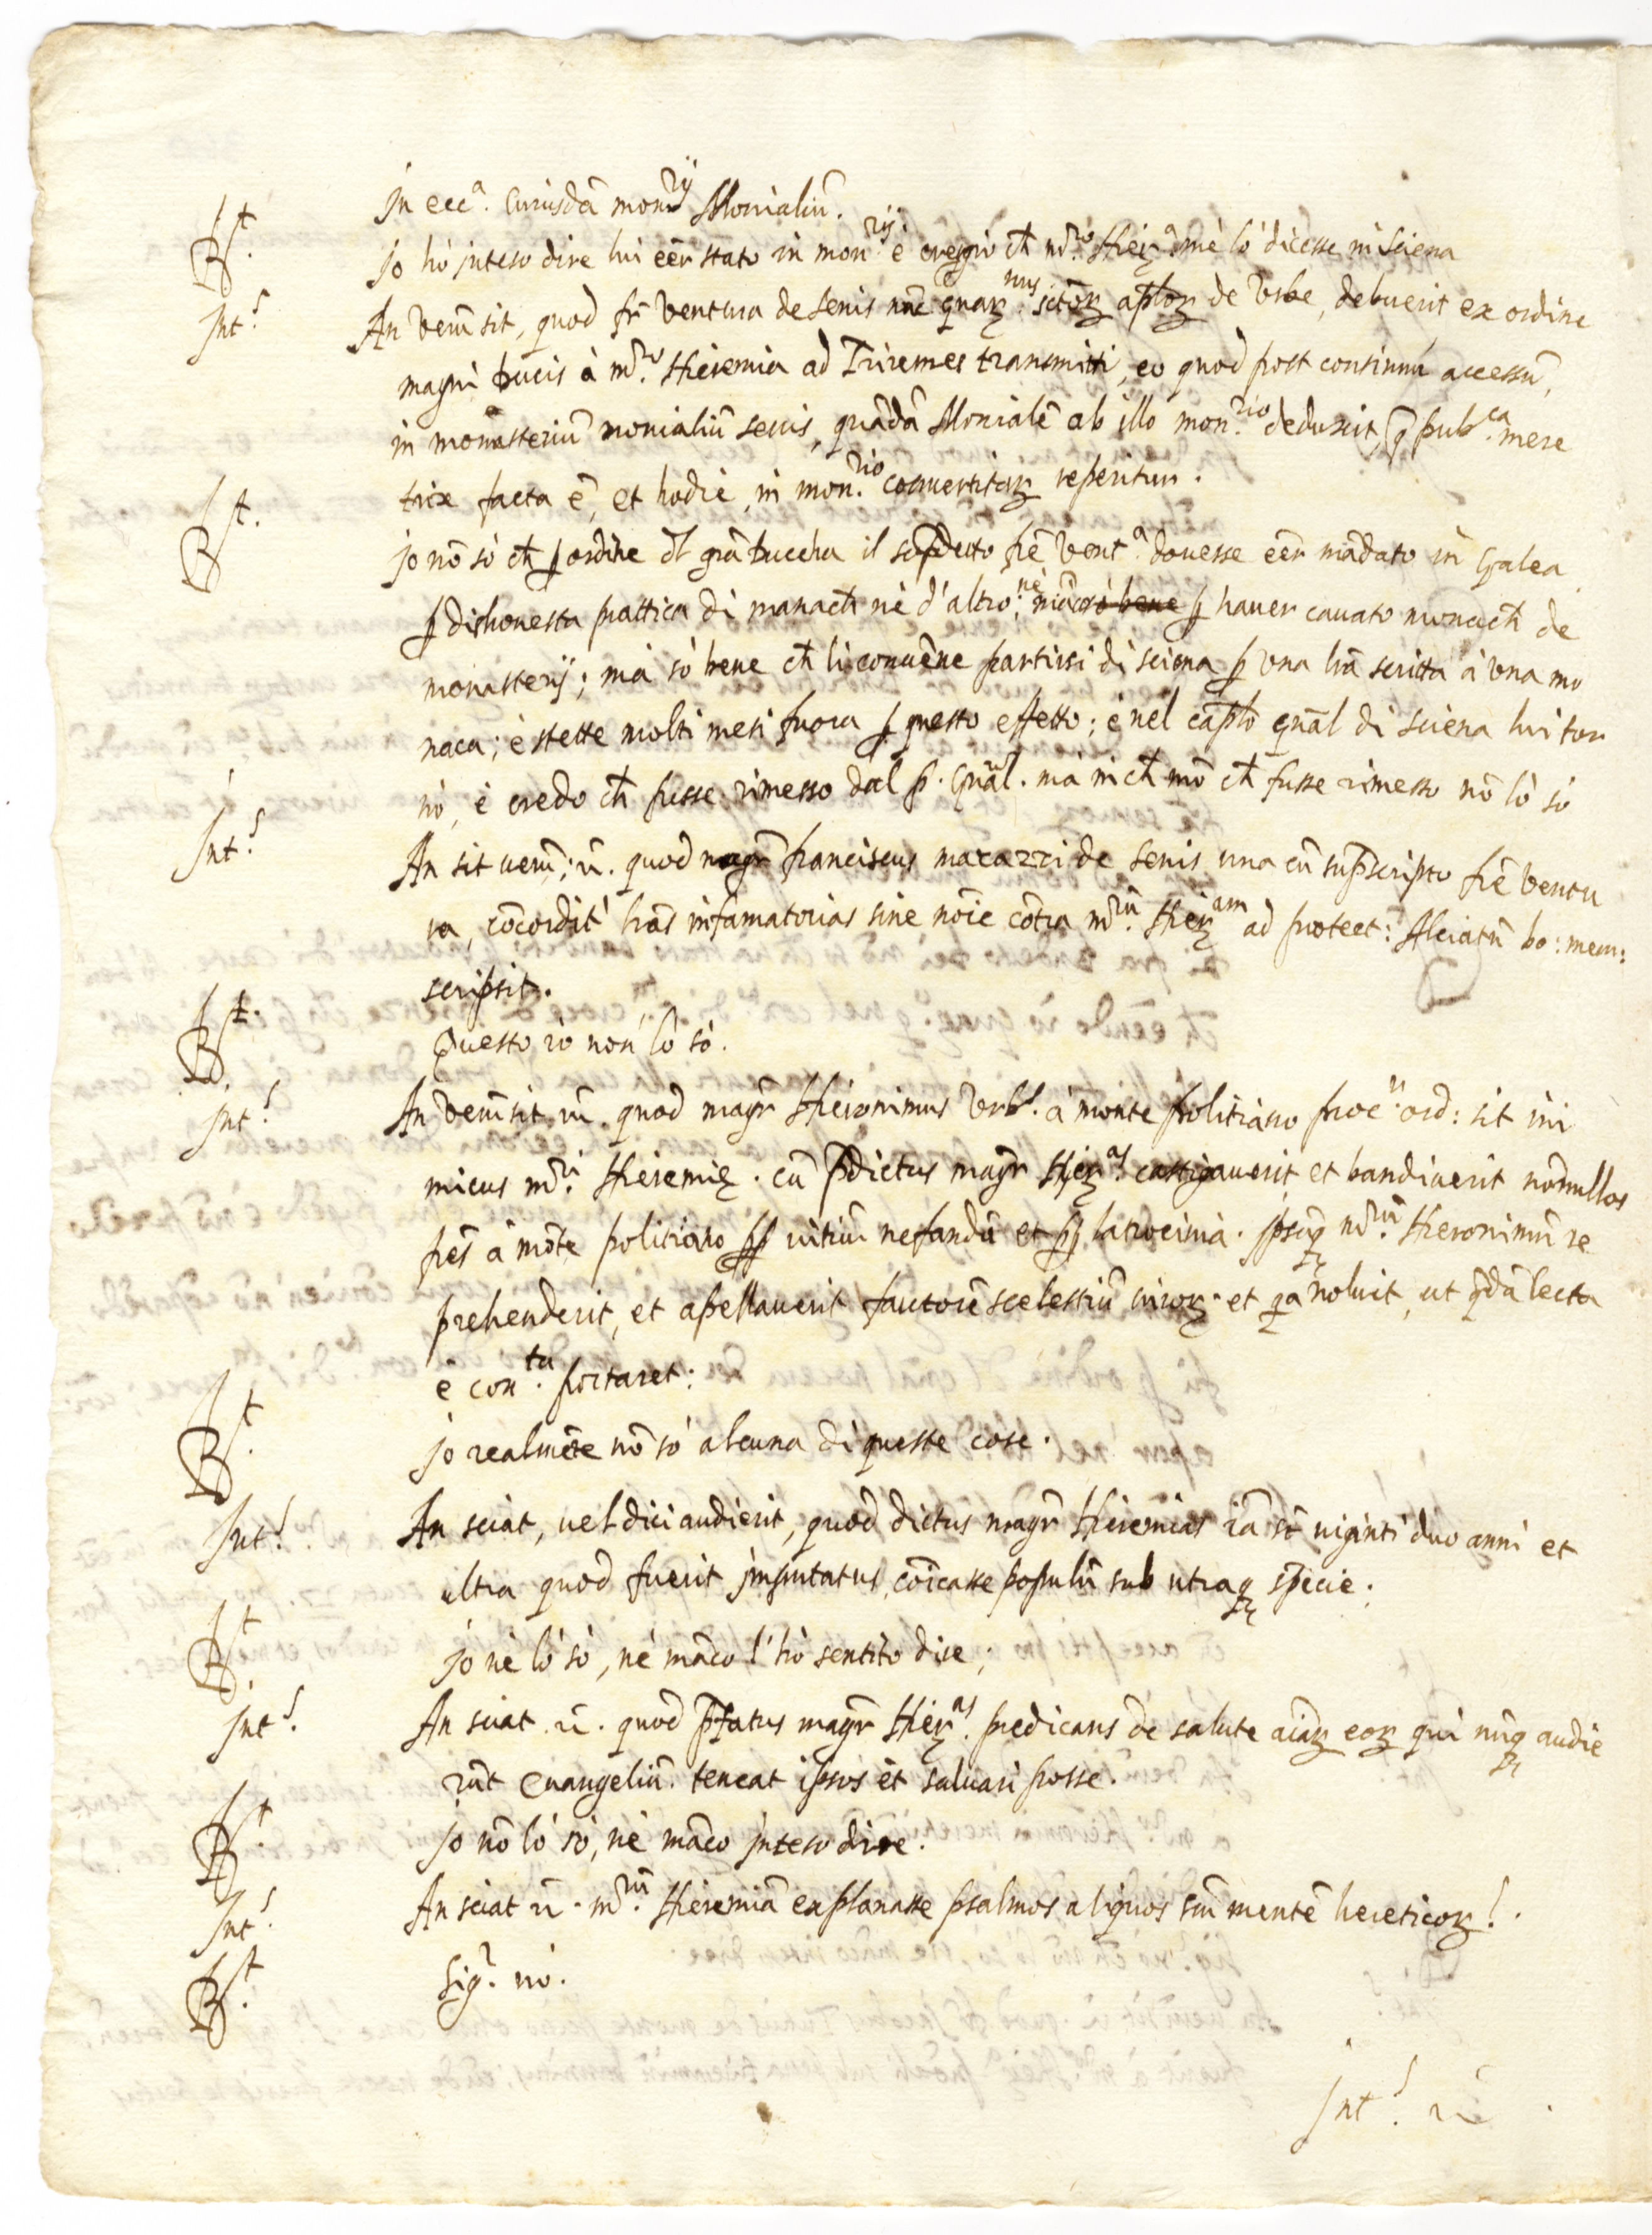 In ecc.ª Cuiusdā mon.rij Monialiū.
R.t Io hò inteso dire lui eēr stato in mon.rij è credo ch̄ m.ro Hier.ª mè lò dicesse in Siena
Int.s An verū sit, quod fr̄ Ventura de Senis nūc guar.nus sctōꝝ aplōꝝ de Vrbe, debuerit ex ordine
magni Ducis à m.ro Hieremia ad Triremes transmitti, eo quod post continuū accessū,
in monasteriū monialiū senis, quādā Monialē ab illo mon.rio deduxit, q̄ pub.ca mere
trix facta ē, et hodie, in mon.rio conuertitaꝝ reperitur.
R.t Io nō sò ch̄ ꝑ ordine dl̄ grā Duccha il sop̄decto frē Vent.ª douesse eēr mādato in Galea
ꝑ dishonesta prattica di manach̄ nè d'altro, nè māco ꝑ hauer cauato monach̄ de
monasterij; mà sò bene ch̄ li conuēne partirsi di siena ꝑ vna lr̄a scritta à vna mo
naca; è stette molti mesi fuora ꝑ questo effetto; è nel cāplo gn̄al di siena lui tor
nò, è credo ch̄ fusse rimesso dal p. Gn̄al. mà in ch̄ mō ch̄ fusse rimesso nō lò sò
Int.s An sit uerū; ū. quod magr̄ franciscus macazzi de senis una cū sup̄scripto frē Ventu
ra, cōcordit' lr̄as infamatorias sine nōie cōtra m.rū Hierꝝam ad protect: Alciatū bo: mem:
scripsit.
R.t Questo iò non lò sò.
Int.s An verū sit ū. quod magr̄ Hieronimus Vrb.s à monte politiano proc.r ord: sit ini
micus m.ri Hieremię. cū p̄dictus magr̄ Hierꝝas castigauerit et bandiuerit nōnullos
fr̄es à mōte politiano ꝓp uitiū nefandū et ꝓp latrocinia. ipsūq m.rū Hieronimū re
prehenderit, et apellauerit fautorē scelestiū uiroꝝ. et qa noluit, ut q̄dā lecta
è con.tu portaret:
R.t Io realmēte nō sò alcuna di queste cose.
Int.s An sciat, uel dici audierit, quod dictus magr̄ Hieremias iā st̄ uiginti duo anni et
ultra quod fuerit imputatus, cōicasse populū sub utraq specie.
R.t Io nè lò sò, nè māco l'hò sentito dire;
Int.s An sciat ū. quod p̄fatus magr̄ Hierꝝas predicans de salute aīaꝝ eoꝝ qui nūq audie
rūt euangeliū. teneat ipsos ēt saluari posse.
R.t Io nō lò sò, nè māco inteso dire.
Int.s An sciat ū. m.rū Hieremiā explanasse psalmos aliquos sm̄ mentē hereticoꝝ!.
R.t Sig.r nò.
Int.s ū